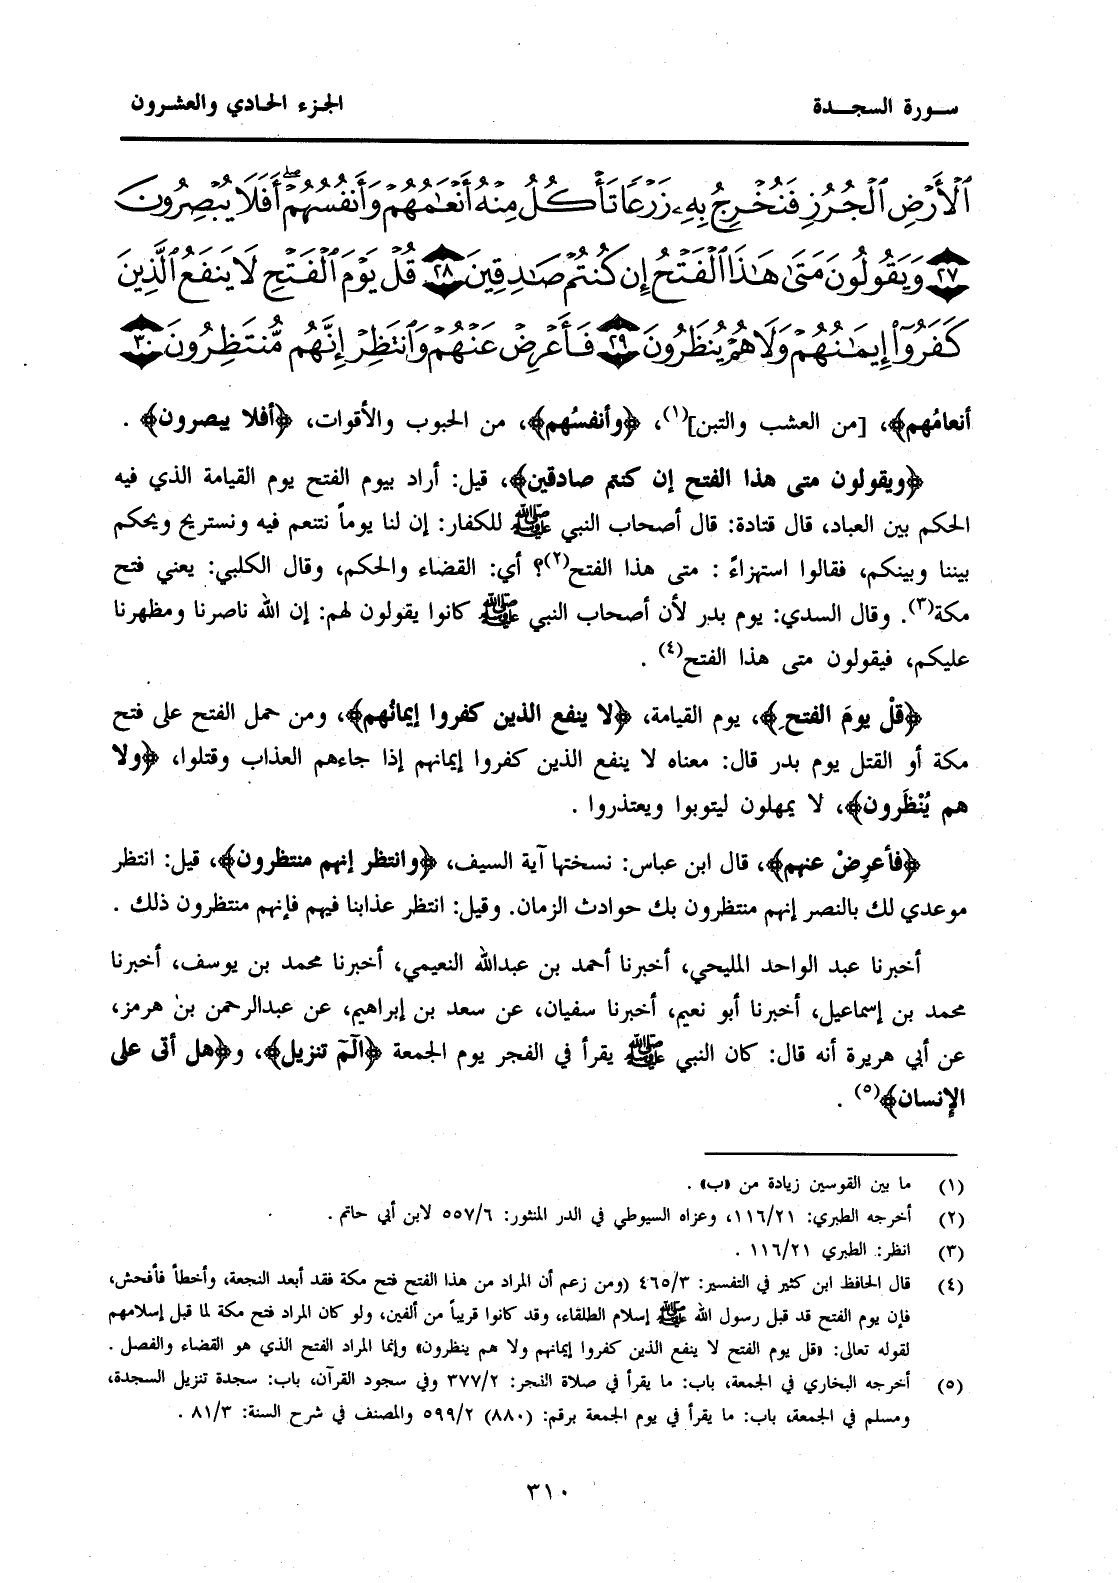 سـورة السجـدة
الجزء الحادي والعشرون
ٱلْأَرْضِ ٱلْجُرُزِ فَنُخْرِجُ بِهِۦ زَرْعًا تَأْكُلُ مِنْهُ أَنْعَٰمُهُمْ وَأَنفُسُهُمْ ۖ أَفَلَا يُبْصِرُونَ
﴿٢٧﴾ وَيَقُولُونَ مَتَىٰ هَٰذَا ٱلْفَتْحُ إِن كُنتُمْ صَٰدِقِينَ ﴿٢٨﴾ قُلْ يَوْمَ ٱلْفَتْحِ لَا يَنفَعُ ٱلَّذِينَ
كَفَرُوٓا۟ إِيمَٰنُهُمْ وَلَا هُمْ يُنظَرُونَ ﴿٢٩﴾ فَأَعْرِضْ عَنْهُمْ وَٱنتَظِرْ إِنَّهُم مُّنتَظِرُونَ ﴿٣٠﴾
أنعامُهم﴾، [من العشب والتبن](١)، ﴿وأنفسُهم﴾، من الحبوب والأقوات، ﴿أفلا يبصرون﴾ .
﴿ويقولون متى هذا الفتح إن كنتم صادقين﴾، قيل: أراد بيوم الفتح يوم القيامة الذي فيه
الحكم بين العباد، قال قتادة: قال أصحاب النبي ﷺ للكفار: إن لنا يوماً نتنعم فيه ونستريح ويحكم
بيننا وبينكم، فقالوا استهزاءً : متى هذا الفتح(٢)؟ أي: القضاء والحكم، وقال الكلبي: يعني فتح
مكة(٣). وقال السدي: يوم بدر لأن أصحاب النبي ﷺ كانوا يقولون لهم: إن الله ناصرنا ومظهرنا
عليكم، فيقولون متى هذا الفتح(٤) .
﴿قلْ يومَ الفتحِ﴾، يوم القيامة، ﴿لا ينفع الذين كفروا إيمانُهم﴾، ومن حمل الفتح على فتح
مكة أو القتل يوم بدر قال: معناه لا ينفع الذين كفروا إيمانهم إذا جاءهم العذاب وقتلوا، ﴿ولا
هم يُنْظَرون﴾، لا يمهلون ليتوبوا ويعتذروا .
﴿فأعرِضْ عنهم﴾، قال ابن عباس: نسختها آية السيف، ﴿وانتظر إنهم منتظرون﴾، قيل: انتظر
موعدي لك بالنصر إنهم منتظرون بك حوادث الزمان. وقيل: انتظر عذابنا فيهم فإنهم منتظرون ذلك .
أخبرنا عبد الواحد المليحي، أخبرنا أحمد بن عبدالله النعيمي، أخبرنا محمد بن يوسف، أخبرنا
محمد بن إسماعيل، أخبرنا أبو نعيم، أخبرنا سفيان، عن سعد بن إبراهيم، عن عبدالرحمن بن هرمز،
عن أبي هريرة أنه قال: كان النبي ﷺ يقرأ في الفجر يوم الجمعة ﴿الٓمٓ تنزيل﴾، و﴿هل أتى على
الإنسان﴾(٥) .
(١) ما بين القوسين زيادة من «ب» .
(٢) أخرجه الطبري: ١١٦/٢١، وعزاه السيوطي في الدر المنثور: ٥٥٧/٦ لابن أبي حاتم .
(٣) انظر: الطبري ١١٦/٢١ .
(٤) قال الحافظ ابن كثير في التفسير: ٤٦٥/٣ (ومن زعم أن المراد من هذا الفتح فتح مكة فقد أبعد النجعة، وأخطأ فأفحش،
فإن يوم الفتح قد قبل رسول الله ﷺ إسلام الطلقاء، وقد كانوا قريباً من ألفين، ولو كان المراد فتح مكة لما قبل إسلامهم
لقوله تعالى: «قل يوم الفتح لا ينفع الذين كفروا إيمانهم ولا هم ينظرون» وإنما المراد الفتح الذي هو القضاء والفصل .
(٥) أخرجه البخاري في الجمعة، باب: ما يقرأ في صلاة الفجر: ٣٧٧/٢ وفي سجود القرآن، باب: سجدة تنزيل السجدة،
ومسلم في الجمعة، باب: ما يقرأ في يوم الجمعة برقم: (٨٨٠) ٥٩٩/٢ والمصنف في شرح السنة: ٨١/٣ .
٣١٠